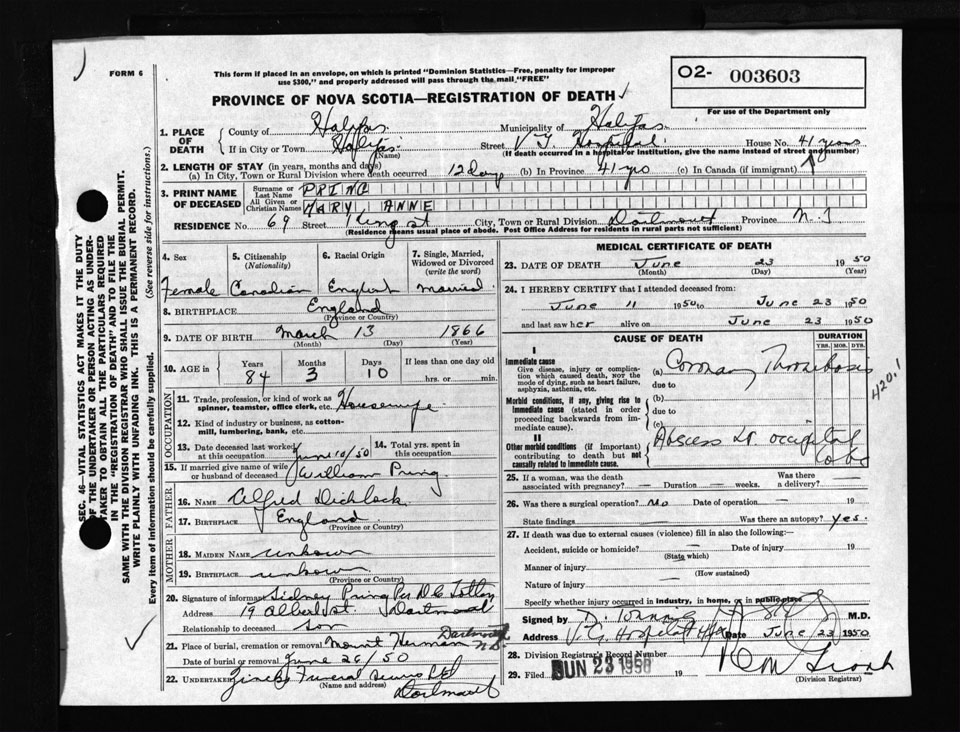 FORM 6
This form if placed in an envelope, on which is printed "Dominion Statistics—Free, penalty for improper
use $300," and properly addressed will pass through the mail "FREE"
O2- 003603
For use of the Department only
PROVINCE OF NOVA SCOTIA—REGISTRATION OF DEATH
1. PLACE OF DEATH
County of Halifax Municipality of Halifax
If in City or Town Halifax (Name) Street V.G. Hospital House No. 41 years
(If death occurred in a hospital or institution, give the name instead of street and number)
2. LENGTH OF STAY (in years, months and days)
(a) In City, Town or Rural Division where death occurred 12 days (b) In Province 41 yrs (c) In Canada (if immigrant)
3. PRINT NAME OF DECEASED
Surname or Last Name PRING
All Given or Christian Names MARY ANNE
RESIDENCE No. 69 Street King st City, Town or Rural Division Dartmouth Province N.S
(Residence means usual place of abode. Post Office Address for residents in rural parts not sufficient)
4. Sex Female
5. Citizenship (Nationality) Canadian
6. Racial Origin English
7. Single, Married, Widowed or Divorced (write the word) Married
8. BIRTHPLACE England
(Province or Country)
9. DATE OF BIRTH March 13 1866
(Month) (Day) (Year)
10. AGE in Years 84 Months 3 Days 10 If less than one day old
hrs. or min.
OCCUPATION
11. Trade, profession or kind of work as
spinner, teamster, office clerk, etc. Housewife
12. Kind of industry or business, as cotton-
mill, lumbering, bank, etc.
13. Date deceased last worked at this occupation June 10/50
14. Total yrs. spent in this occupation
15. If married give name of wife
or husband of deceased William Pring
FATHER
16. NAME Alfred
17. BIRTHPLACE England
(Province or Country)
MOTHER
18. MAIDEN NAME unkown
19. BIRTHPLACE unkown
(Province or Country)
20. Signature of informant Sidney Pring Per D C
Address 19 Albert st. Dartmouth
Relationship to deceased son
21. Place of burial, cremation or removal Mount Herman Dartmouth
Date of burial or removal June 26/50
22. UNDERTAKER Funeral
(Name and address) Dartmouth
MEDICAL CERTIFICATE OF DEATH
23. DATE OF DEATH June 23 1950
(Month) (Day) (Year)
24. I HEREBY CERTIFY that I attended deceased from:
June 11 1950 to June 23 1950
and last saw her alive on June 23 1950
CAUSE OF DEATH
DURATION
YRS. MOS. DYS.
I
Immediate cause
Give disease, injury or complica-
tion which caused death, NOT the
mode of dying, such as heart failure,
asphyxia, asthenia, etc.
(a) Coronary Thrombosis
due to
420.1
Morbid conditions, if any, giving rise to
immediate cause (stated in order
proceeding backwards from im-
mediate cause).
(b)
due to
(c)
II
Other morbid conditions (if important)
contributing to death but not
causally related to immediate cause.
Abscess Lt. occipital
lobe
25. If a woman, was the death
associated with pregnancy? — Duration — weeks. Was there
a delivery? —
26. Was there a surgical operation? No Date of operation — 19
State findings Was there an autopsy? Yes.
27. If death was due to external causes (violence) fill in also the following:—
Accident, suicide or homicide? Date of injury 19
(State which)
Manner of injury
(How sustained)
Nature of injury
Specify whether injury occurred in industry, in home, or in public place
Signed by M.D.
Address V.G. Hospital Hfx Date June 23 1950
28. Division Registrar's Record Number
29. Filed JUN 23 1950
(Division Registrar)
SEC. 46—VITAL STATISTICS ACT MAKES IT THE DUTY
OF THE UNDERTAKER OR PERSON ACTING AS UNDER-
TAKER TO OBTAIN ALL THE PARTICULARS REQUIRED
IN THE "REGISTRATION OF DEATH" AND TO FILE THE
SAME WITH THE DIVISION REGISTRAR WHO SHALL ISSUE THE BURIAL PERMIT.
WRITE PLAINLY WITH UNFADING INK. THIS IS A PERMANENT RECORD.
Every item of information should be carefully supplied. (See reverse side for instructions.)